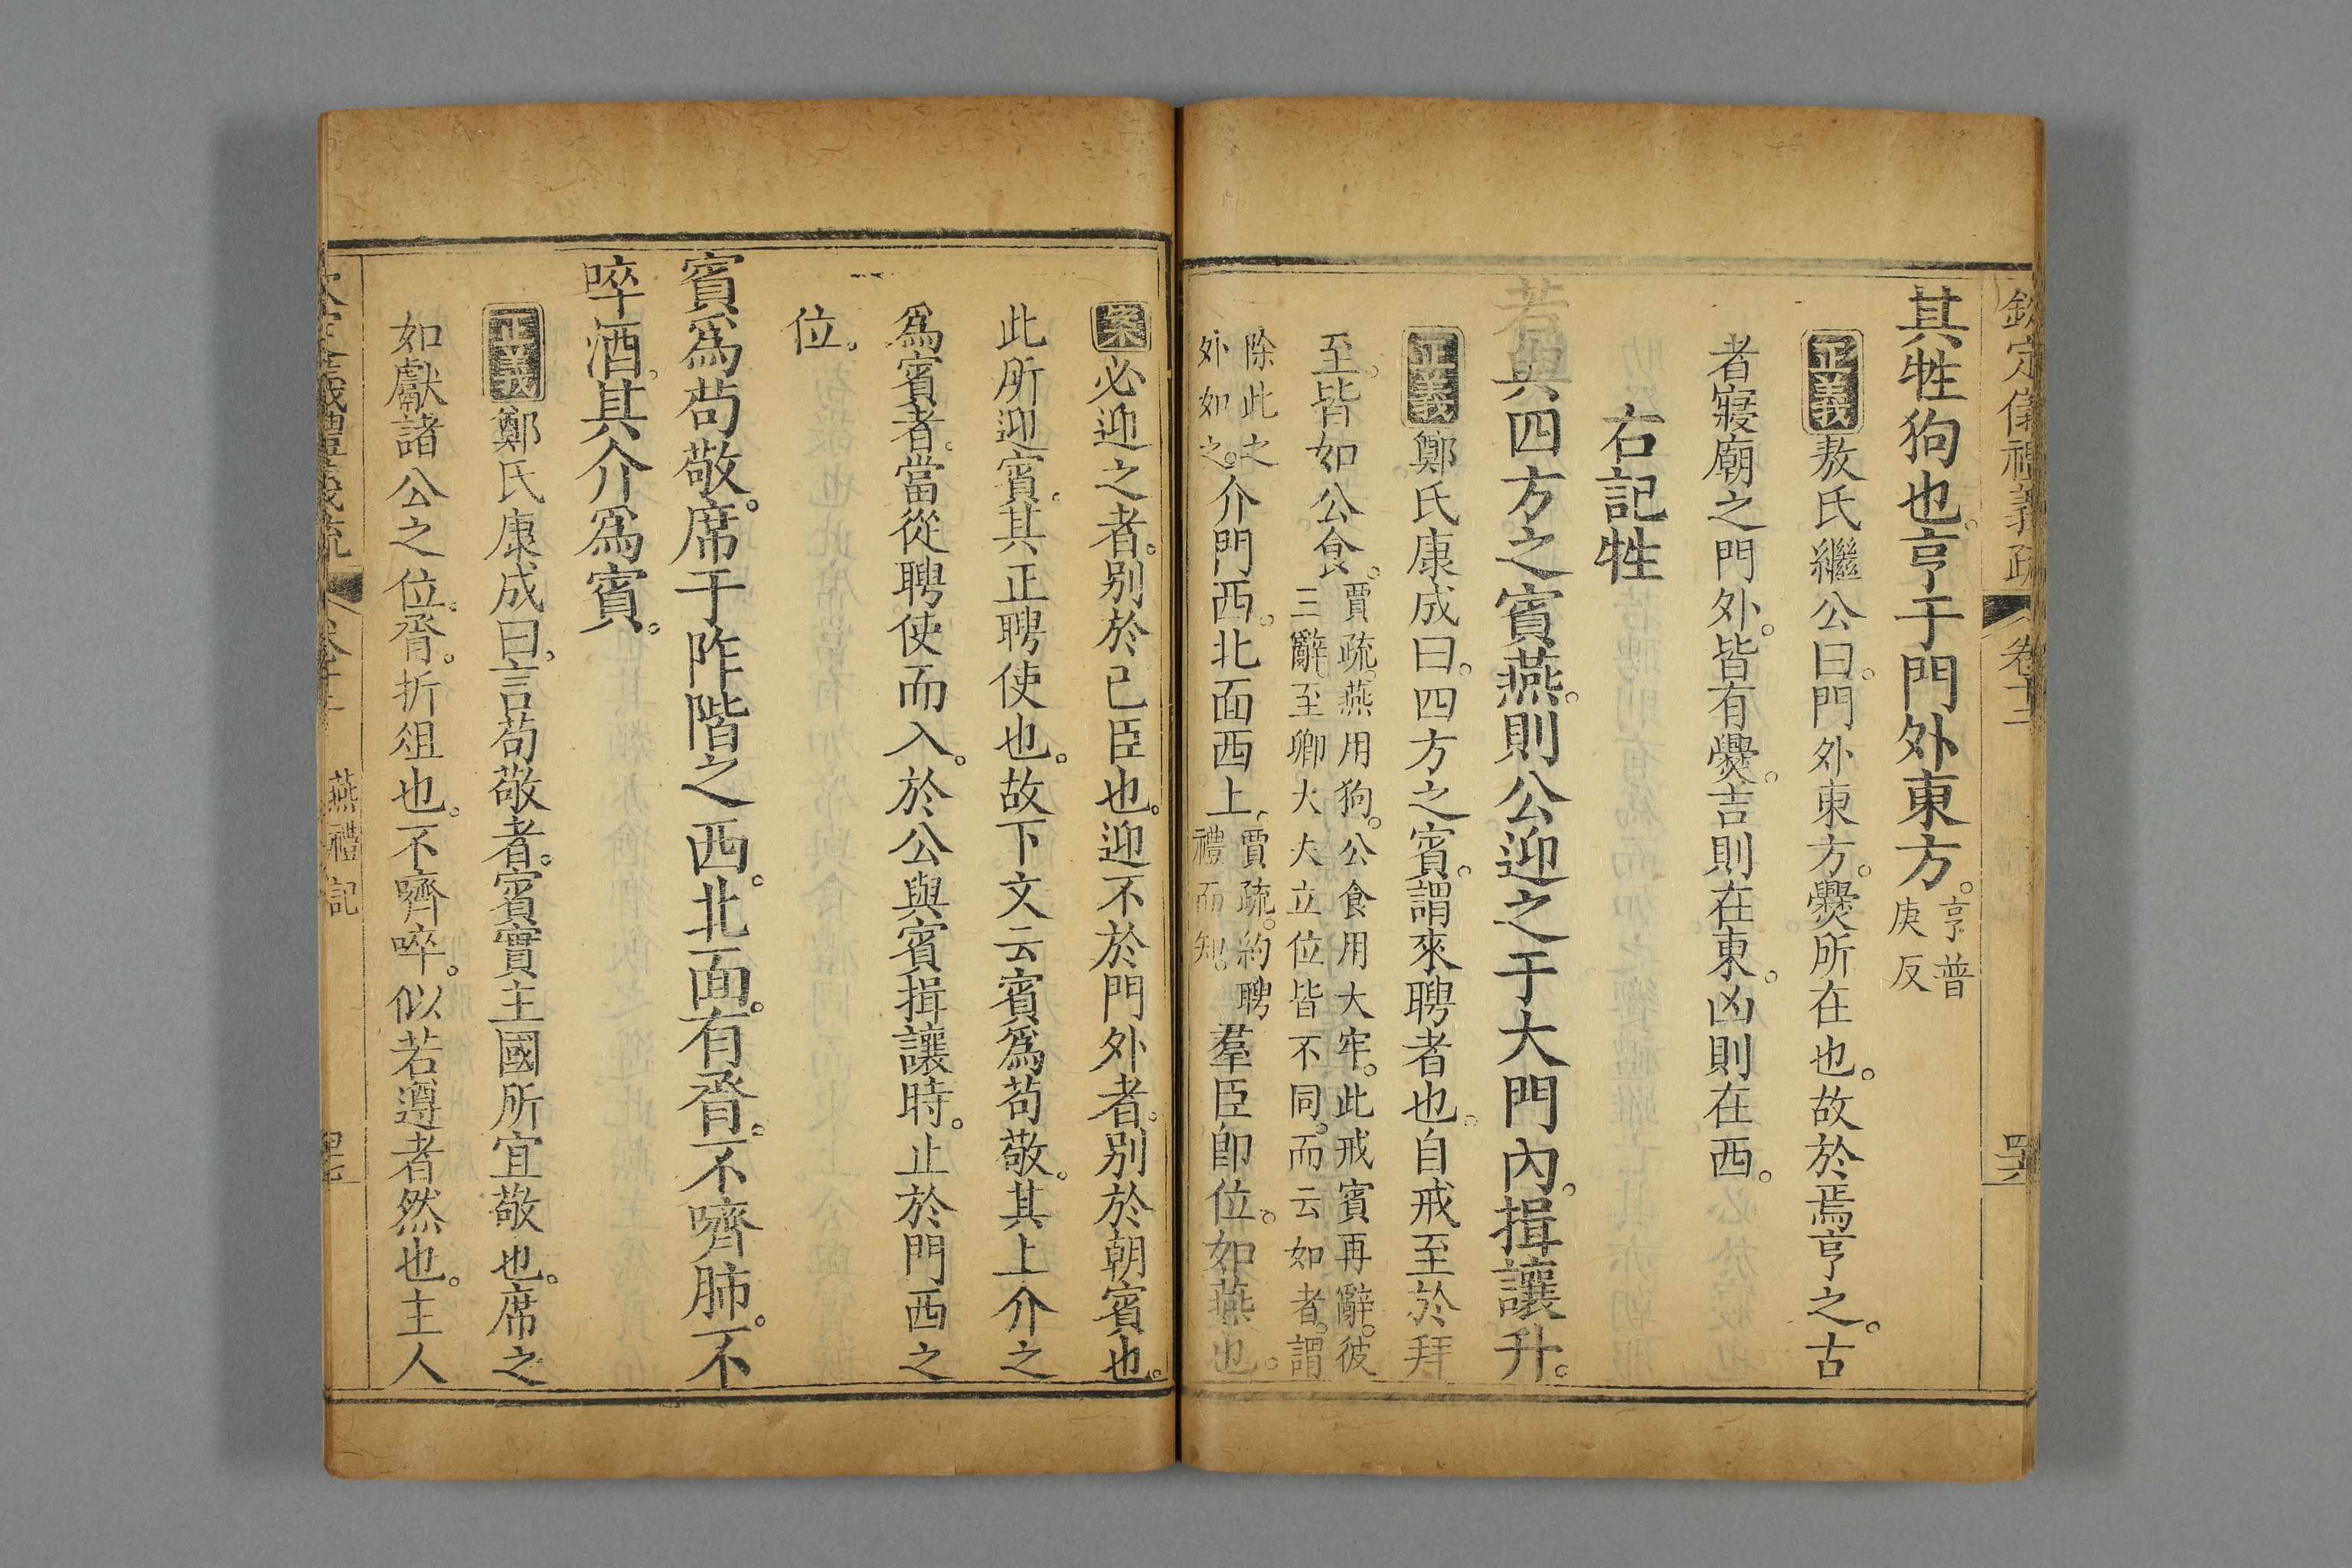 欽定儀禮義疏 卷十二 四六
其牲狗也。亨于門外東方。亨普庚反
正義敖氏繼公曰。門外東方。爨所在也。故於焉亨之。古
者寢廟之門外。皆有爨。吉則在東。凶則在西。
右記牲
若與四方之賓燕。則公迎之于大門內。揖讓升。
正義鄭氏康成曰。四方之賓。謂來聘者也。自戒至於拜
至。皆如公食。賈疏。燕用狗。公食用大牢。此戒賓再辭。彼三辭。至卿大夫立位皆不同。而云如者。謂
除此之外如之。介門西。北面西上。賈疏。約聘禮而知。羣臣卽位。如燕也。
案必迎之者。别於已臣也。迎不於門外者。别於朝賓也。
此所迎賓。其正聘使也。故下文云賓爲苟敬。其上介之
爲賓者。當從聘使而入。於公與賓揖讓時。止於門西之
位。
賓爲苟敬。席于阼階之西。北面。有脀。不嚌肺。不
啐酒。其介爲賓。
正義鄭氏康成曰。言苟敬者。賓實主國所宜敬也。席之
如獻諸公之位。脀。折俎也。不嚌啐。似若遵者然也。主人
燕禮記